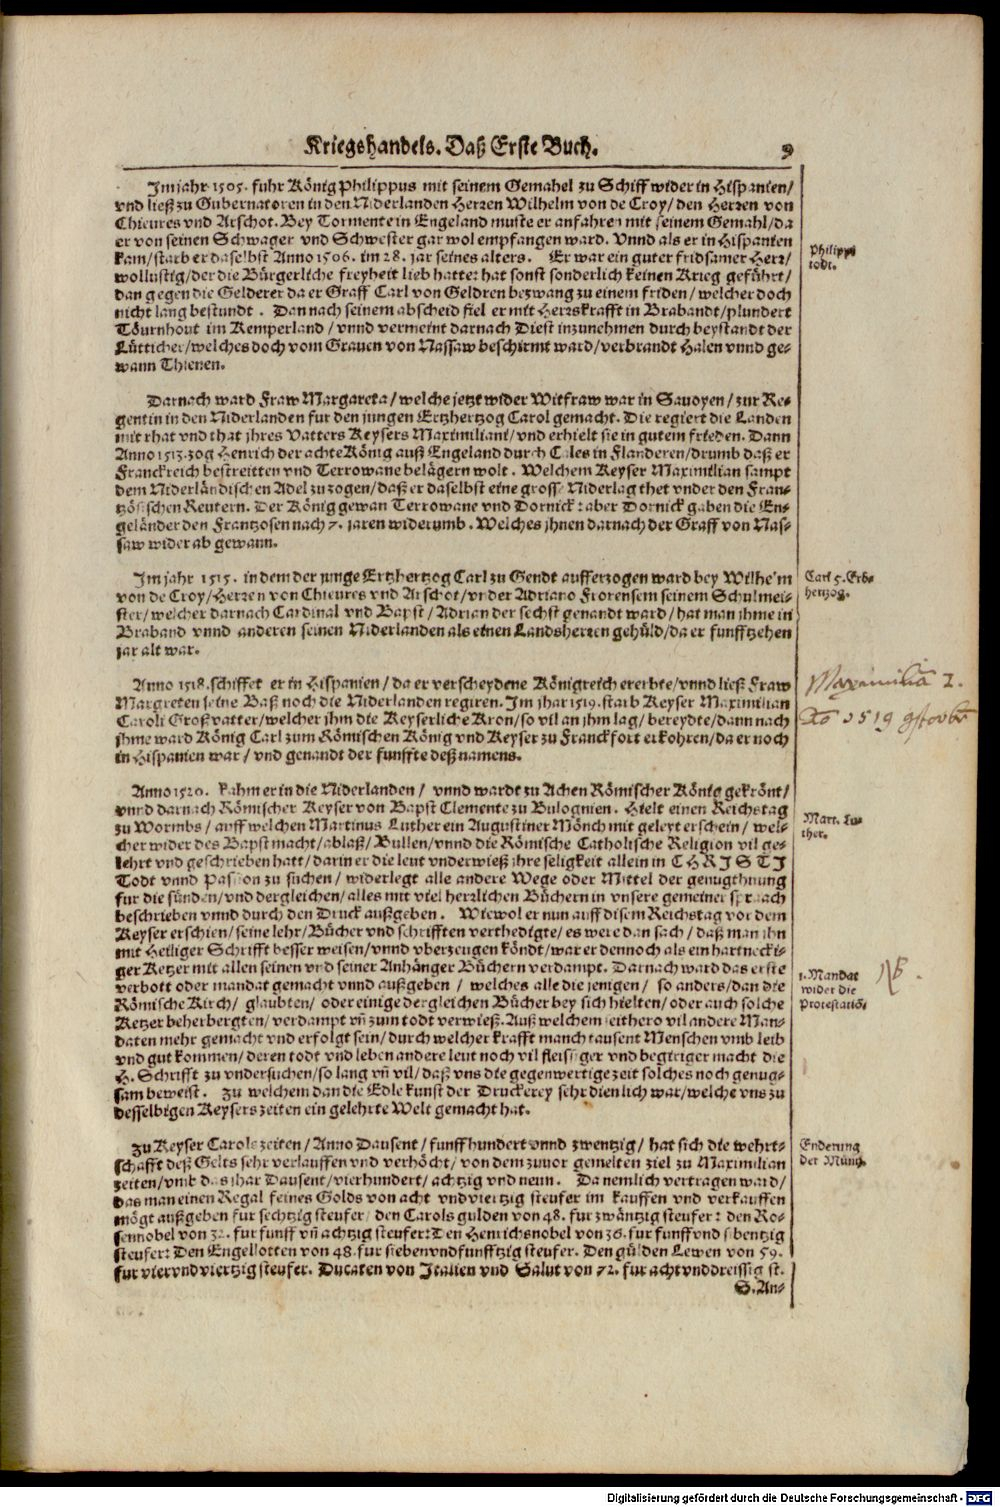 Kriegshandels. Daß Erste Buch. 9
Im jahr 1505. fuhr König Philippus mit seinem Gemahel zu Schiff wider in Hispanien/
vnd ließ zu Gubernatoren in den Niderlanden Herren Wilhelm von de Croy/ den Herren von
Chieures vnd Arschot. Bey Tormente in Engeland muste er anfahren mit seinem Gemahl/ da
er von seinen Schwager vnd Schwester gar wol empfangen ward. Vnnd als er in Hispanien
kam/ starb er daselbst Anno 1506. im 28. jar seines alters. Er war ein guter fridsamer Herr/
Philippi
todt.
wollustig/ der die Bürgerliche freyheit lieb hatte: hat sonst sonderlich keinen Krieg geführt/
dan gegen die Gelderer da er Graff Carl von Geldren bezwang zu einem friden/ welcher doch
nicht lang bestundt. Dan nach seinem abscheid fiel er mit Herrskrafft in Brabandt/ plundert
Töurnhout im Kemperland/ vnnd vermeint darnach Diest inzunehmen durch beystandt der
Lütticher/ welches doch vom Grauen von Nassaw beschirmt ward/ verbrandt Halen vnnd ge-
wann Thienen.
Darnach ward Fraw Margareta/ welche jetzt wider Witfraw war in Sauoyen/ zur Re-
gentin in den Niderlanden fur den jungen Ertzhertzog Carol gemacht. Die regiert die Landen
mit rhat vnd that jhres Vatters Keysers Maximiliani/ vnd erhielt sie in gutem frieden. Dann
Anno 1513. zog Henrich der achte König auß Engeland durch Cales in Flanderen/ drumb daß er
Franckreich bestreitten vnd Terrowane belägern wolt. Welchem Keyser Maximilian sampt
dem Niderländischen Adel zuzogen/ daß er daselbst eine grosse Niderlag thet vnder den Fran-
tzösischen Reutern. Der König gewan Terrowane vnd Dornick: aber Dornick gaben die En-
geländer den Frantzosen nach 7. jaren widerumb. Welches jhnen darnach der Graff von Nas-
saw wider ab gewann.
Im jahr 1515. in dem der junge Ertzhertzog Carl zu Gendt aufferzogen ward bey Wilhelm
Carl 5. Erb-
hertzog.
von de Croy/ Herren von Chieures vnd Arschot/ vnder Adriano Florensem seinem Schulmei-
ster/ welcher darnach Cardinal vnd Bapst/ Adrian der sechst genandt ward/ hat man jhme in
Braband vnnd anderen seinen Niderlanden als einen Landsherren gehüld/ da er funfftzehen
jar alt war.
Anno 1518. schiffet er in Hispanien/ da er verscheydene Königreich ererbte/ vnnd ließ Fraw
Margreten seine Baß noch die Niderlanden regiren. Im jhar 1519. starb Keyser Maximilian
Caroli Großvatter/ welcher jhm die Keyserliche Kron/ so vil an jhm lag/ bereydte/ dann nach
jhme ward König Carl zum Römischen König vnd Keyser zu Franckfort erkohren/ da er noch
in Hispanien war/ vnd genandt der funffte deß namens.
Maximiliā
1519
Anno 1520. kahm er in die Niderlanden/ vnnd wardt zu Achen Römischer König gekrönt/
vnnd darnach Römischer Keyser von Bapst Clemente zu Bulognien. Hielt einen Reichstag
zu Wormbs/ auff welchen Martinus Luther ein Augustiner Mönch mit geleyt erschein/ wel-
Mart. Lu-
ther.
cher wider des Bapst macht/ ablaß/ Bullen/ vnnd die Römische Catholische Religion vil ge-
lehrt vnd geschrieben hatt/ darin er die leut vnderwieß jhre seligkeit allein in CHRISTI
Todt vnnd Passion zu suchen/ widerlegt alle andere Wege oder Mittel der genugthnung
fur die sünden/ vnd dergleichen/ alles mit viel herrlichen Büchern in vnsere gemeiner sprach
beschrieben vnnd durch den Druck außgeben. Wiewol er nun auff disem Reichstag vor dem
Keyser erschien/ seine lehr/ Bücher vnd schrifften verthedigte/ es were dan sach/ daß man jhn
mit Heiliger Schrifft besser weisen/ vnnd vberzeugen köndt/ war er dennoch als ein hartnecki-
ger Ketzer mit allen seinen vnd seiner Anhänger Büchern verdampt. Darnach ward das erste
1. Mandat
wider die
Protestatiō.
NB.
verbott oder mandat gemacht vnnd außgeben/ welches alle die jenigen/ so anders/ dan die
Römische Kirch/ glaubten/ oder einige dergleichen Bücher bey sich hielten/ oder auch solche
Ketzer beherbergten/ verdampt vñ zum todt verwieß. Auß welchem seithero vil andere Man-
daten mehr gemacht vnd erfolgt sein/ durch welcher krafft manch tausent Menschen vmb leib
vnd gut kommen/ deren todt vnd leben andere leut noch vil fleissiger vnd begiriger macht die
H. Schrifft zu vndersuchen/ so lang vñ vil/ daß vns die gegenwertige zeit solches noch genug-
sam beweist. Zu welchem dan die Edle kunst der Druckerey sehr dienlich war/ welche vns zu
desselbigen Keysers zeiten ein gelehrte Welt gemacht hat.
Zu Keyser Carols zeiten/ Anno Dausent/ funff hundert vnnd zwentzig/ hat sich die wehrt-
Enderung
der Müng.
schafft deß Gelts sehr verlauffen vnd verhöcht/ von dem zuuor gemelten ziel zu Maximilian
zeiten/ vmb das jhar Dausent/ vierhundert/ achtzig vnd neun. Da nemlich vertragen ward/
das man einen Regal feines Golds von acht vnd viertzig steufer im kauffen vnd verkauffen
mögt außgeben fur sechtzig steufer/ den Carols gulden von 48. fur zwäntzig steufer: den Ro-
sennobel von 32. fur funff vñ achtzig steufer: Den Henrichsnobel von 36. fur funff vnd sibentzig
steufer: Den Engellotten von 48. fur sieben vnd funfftzig steufer. Den gülden Lewen von 59.
fur vier vnd viertzig steufer. Ducaten von Italien vnd Salut von 72. fur acht vnd dreissig st.
S. An-
Digitalisierung gefördert durch die Deutsche Forschungsgemeinschaft - DFG